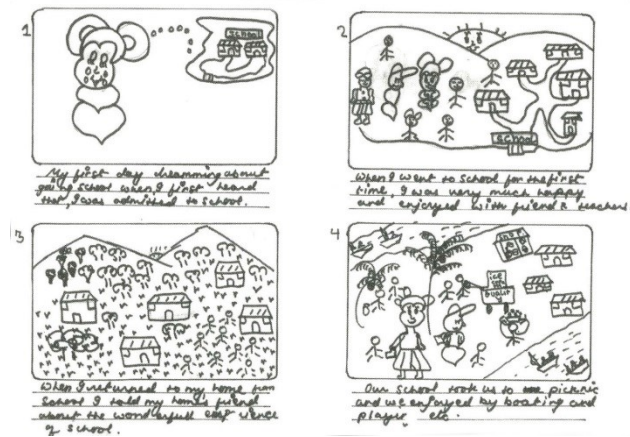 1
school
My first day dreamming about
going school when I first heard
that, I was admitted to school.
2
school
When I went to school for the first
time, I was very much happy
and enjoyed with friend & teachers
3
When I returned to my home from
school I told my home's friend
about the wonderfull
of school.
4
ice
Our school took us to picknic
and we enjoyed by boating and
player etc.